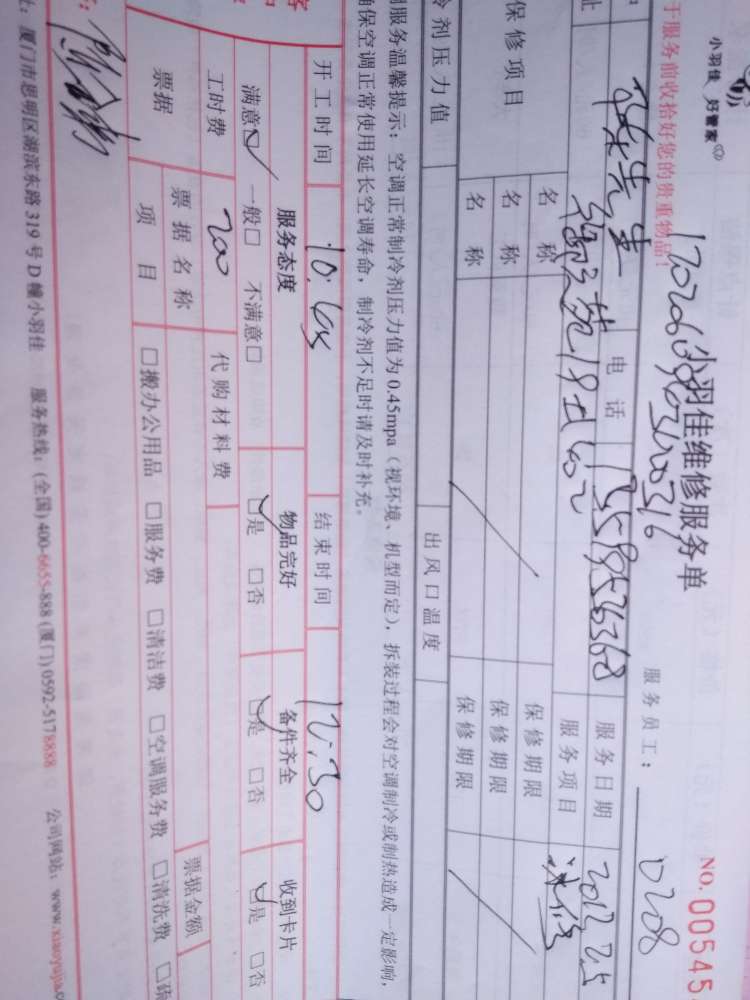 小羽佳 好管家
于服务前收拾好您的贵重物品!
小羽佳维修服务单
服务员工: 0208
NO. 00545
先生
电话
服务日期
址
服务项目
保修项目
名称
保修期限
名称
保修期限
名称
保修期限
冷剂压力值
出风口温度
服务温馨提示: 空调正常制冷剂压力值为0.45mpa (视环境、机型而定), 拆装过程会对空调制冷或制热造成一定影响,
确保空调正常使用延长空调寿命, 制冷剂不足时请及时补充。
开工时间 10:45 结束时间 12:30
服务态度 物品完好 备件齐全 收到卡片
满意☑ 一般□ 不满意□ ☑是 □否 ☑是 □否 ☑是 □否
工时费 200 代购材料费
票据 票据名称 票据金额
项目 □搬办公用品 □服务费 □清洁费 □空调服务费 □清洗费
厦门市思明区湖滨东路319号D幢小羽佳 服务热线: (全国)400-6655-888 (厦门)0592-5178888 公司网站: www.xiaoyujia.c